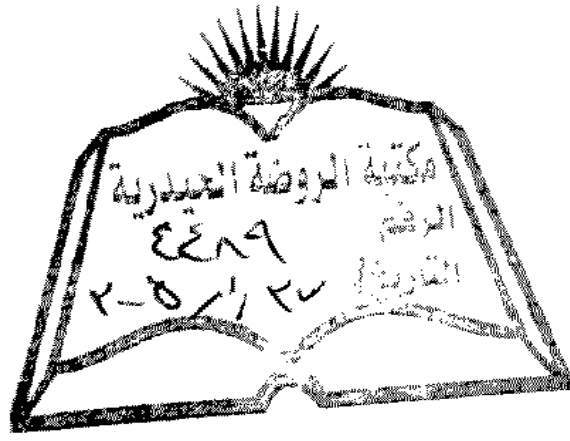 مكتبة الروضة الحيدرية
الرقم ٤٤٨٩
التاريخ